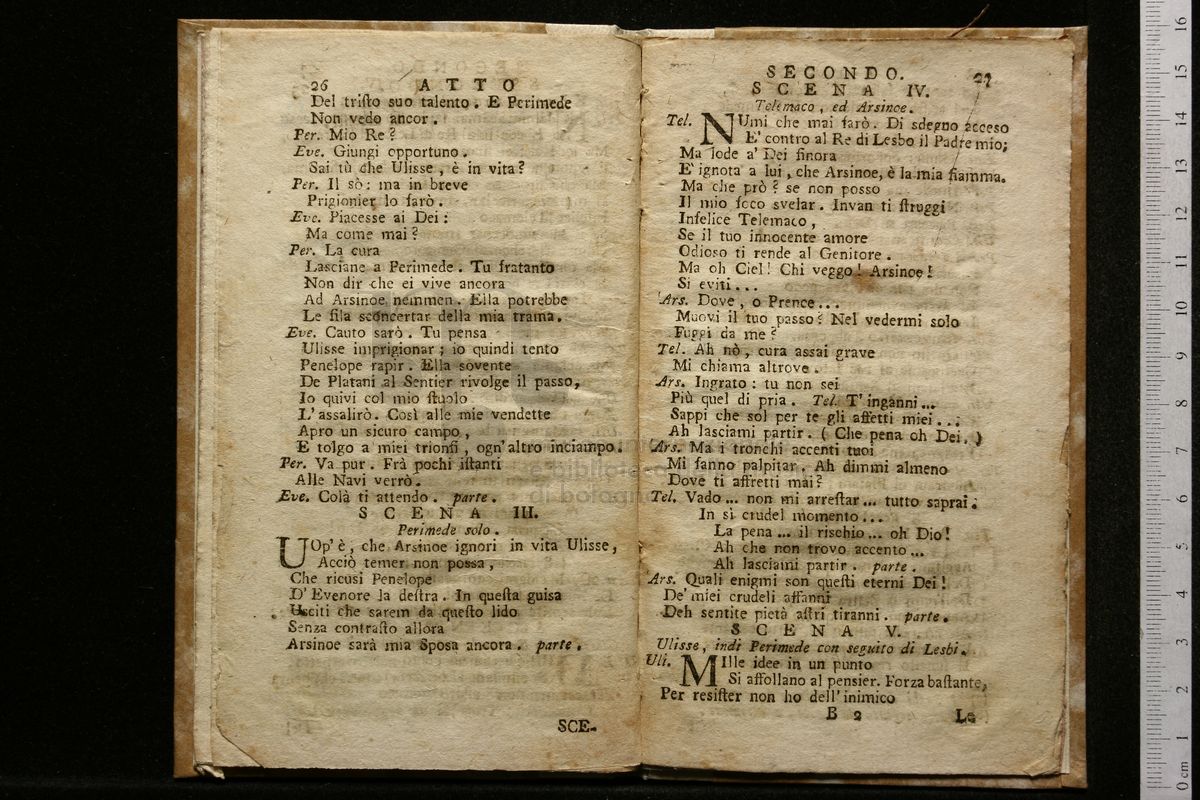 26 ATTO
Del tristo suo talento. E Perimede
Non vedo ancor.
Per. Mio Re?
Eve. Giungi opportuno.
Sai tù che Ulisse, è in vita?
Per. Il sò: ma in breve
Prigionier lo farò.
Eve. Piacesse ai Dei:
Ma come mai?
Per. La cura
Lasciane a Perimede. Tu fratanto
Non dir che ei vive ancora
Ad Arsinoe nemmen. Ella potrebbe
Le fila sconcertar della mia trama.
Eve. Cauto sarò. Tu pensa
Ulisse imprigionar; io quindi tento
Penelope rapir. Ella sovente
De Platani al Sentier rivolge il passo,
Io quivi col mio stuolo
L'assalirò. Così alle mie vendette
Apro un sicuro campo,
E tolgo a miei trionfi, ogn'altro inciampo.
Per. Va pur. Frà pochi istanti
Alle Navi verrò.
Eve. Colà ti attendo. parte.
SCENA III.
Perimede solo.
UOp'è, che Arsinoe ignori in vita Ulisse,
Acciò temer non possa,
Che ricusi Penelope
D'Evenore la destra. In questa guisa
Usciti che sarem da questo lido
Senza contrasto allora
Arsinoe sarà mia Sposa ancora. parte.
SCE-
SECONDO. 27
SCENA IV.
Telemaco, ed Arsinoe.
Tel. NUmi che mai farò. Di sdegno acceso
E' contro al Re di Lesbo il Padre mio;
Ma lode a' Dei finora
E' ignota a lui, che Arsinoe, è la mia fiamma.
Ma che prò? se non posso
Il mio foco svelar. Invan ti struggi
Infelice Telemaco,
Se il tuo innocente amore
Odioso ti rende al Genitore.
Ma oh Ciel! Chi veggo! Arsinoe!
Si eviti...
Ars. Dove, o Prence...
Muovi il tuo passo? Nel vedermi solo
Fuggi da me?
Tel. Ah nò, cura assai grave
Mi chiama altrove.
Ars. Ingrato: tu non sei
Più quel di pria. Tel. T'inganni...
Sappi che sol per te gli affetti miei...
Ah lasciami partir. (Che pena oh Dei.)
Ars. Ma i tronchi accenti tuoi
Mi fanno palpitar. Ah dimmi almeno
Dove ti affretti mai?
Tel. Vado... non mi arrestar... tutto saprai.
In si crudel momento...
La pena... il rischio... oh Dio!
Ah che non trovo accento...
Ah lasciami partir. parte.
Ars. Quali enigmi son questi eterni Dei!
De' miei crudeli affanni
Deh sentite pietà astri tiranni. parte.
SCENA V.
Ulisse, indi Perimede con seguito di Lesbi.
Uli. MIlle idee in un punto
Si affollano al pensier. Forza bastante,
Per resister non ho dell'inimico
B 2 La
0 cm 1 2 3 4 5 6 7 8 9 10 11 12 13 14 15 16